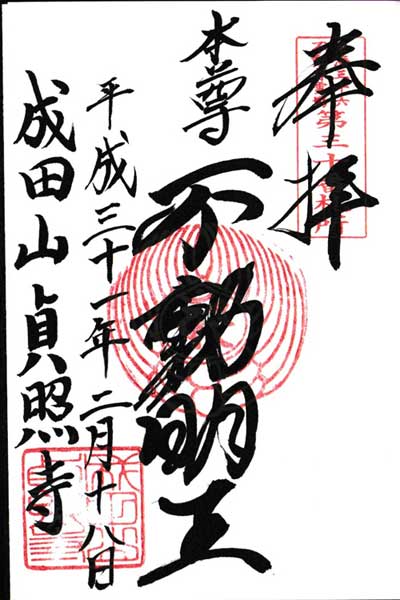 奉拝
第三十番札所
本尊
不動明王
平成三十一年二月十八日
成田山貞照寺